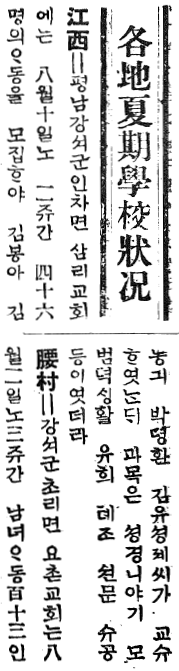 各地夏期學校狀況
江西=평남강서군인차면 삼리교회
에는 八월十일노 二쥬간 四十六
명의ᄋᆞ동을 모집ᄒᆞ야 김봉아 김
농긔 박명환 김유성제씨가 교슈
ᄒᆞ엿ᄂᆞᆫᄃᆡ 과목은 성경니야기 모
범뎍싱활 유희 톄조 천문 슈공
등이엿더라
腰村=강셔군초리면 요촌교회는八
월二일노三쥬간 남녀ᄋᆞ동百十三인